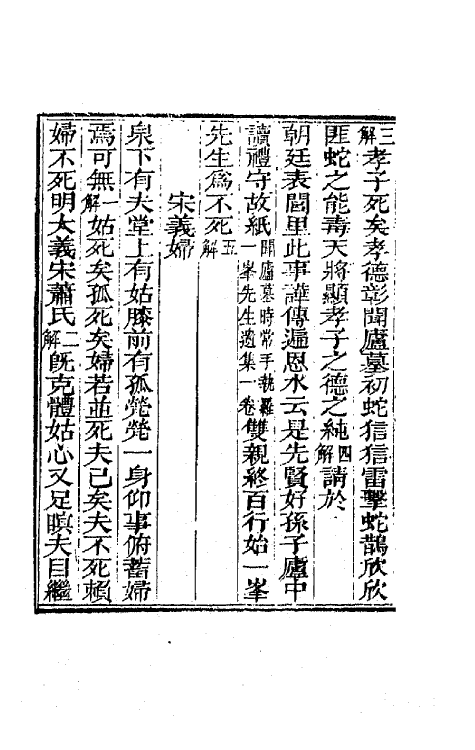 三解孝子死矣孝德彰聞廬墓初蛇狺狺雷擊蛇鵲欣欣
匪蛇之能毒天將顯孝子之德之純四解請於
朝廷表閭里此事譁傳遍恩水云是先賢好孫子廬中
讀禮守故紙聞廬墓時常手執羅一峯先生遺集一卷雙親終百行始一峯
先生爲不死五解
宋義婦
泉下有夫堂上有姑膝前有孤煢煢一身仰事俯蓄婦
焉可無一解姑死矣孤死矣婦若並死夫已矣夫不死賴
婦不死明大義宋蕭氏二解旣克體姑心又足瞑夫目繼